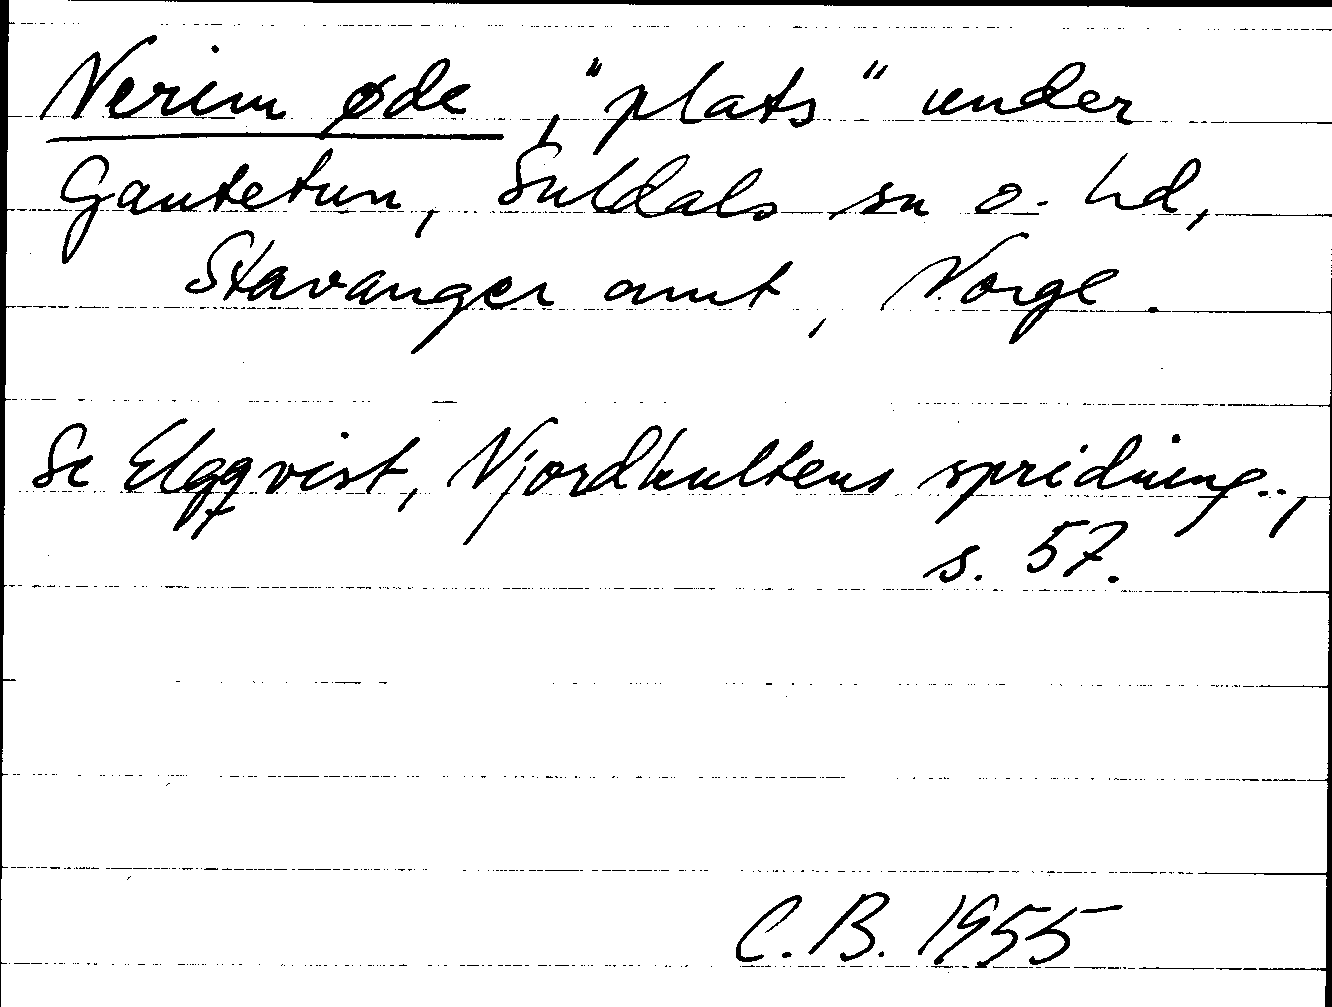 Nerim øde, "plats" under
Gautetun, Suldals sn o. hd,
Stavanger amt, Norge.
Se Elgqvist, Njordkultens spridning..,
s. 57.
C.B. 1955